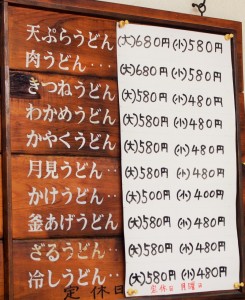 天ぷらうどん (大)680円 (小)580円
肉うどん・・・ (大)680円 (小)580円
きつねうどん (大)580円 (小)480円
わかめうどん (大)580円 (小)480円
かやくうどん (大)580円 (小)480円
月見うどん・・ (大)580円 (小)480円
かけうどん・・ (大)500円 (小)400円
釜あげうどん (大)580円 (小)480円
ざるうどん・・ (大)580円 (小)480円
冷しうどん・・ (大)580円 (小)480円
定休日 定休日 月曜日